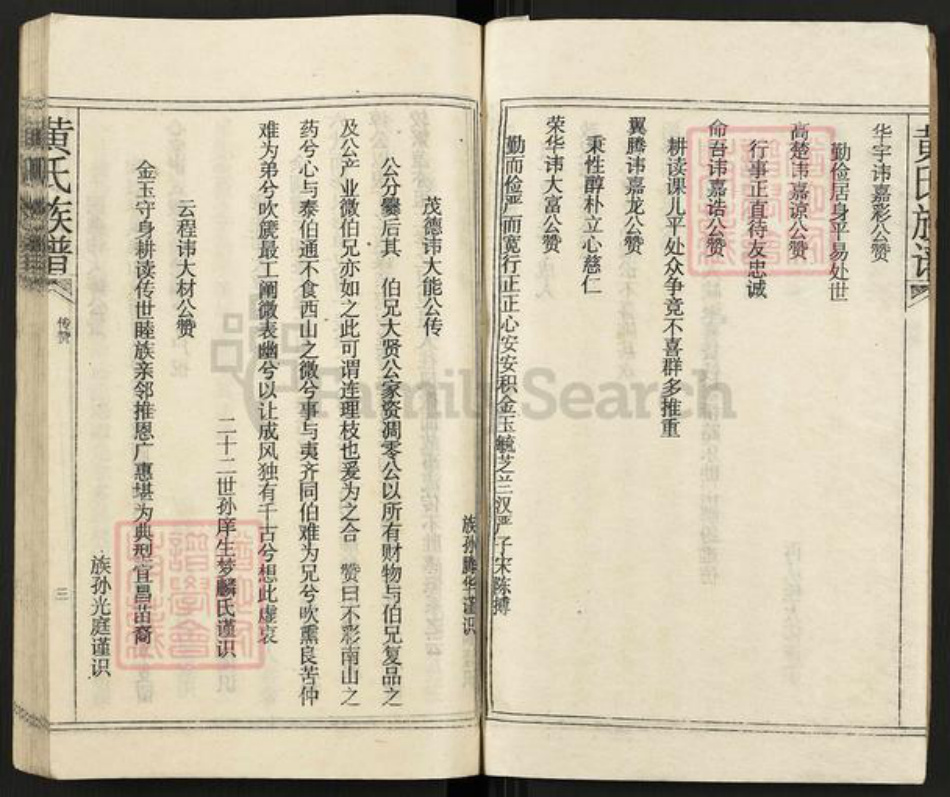 黄氏族谱
华宇讳嘉彩公赞
勤俭居身平易处世
高楚讳嘉谅公赞
行事正直待友忠诚
命吾讳嘉诰公赞
耕读课儿平处众争竞不喜群多推重
翼腾讳嘉龙公赞
秉性醇朴立心慈仁
荣华讳大富公赞
勤而俭严而宽行正正心安安积金玉毓芝兰汉严子宋陈搏
族孙腾华谨识
茂德讳大能公传
公分爨后其 伯兄大贤公家资凋零公以所有财物与伯兄复品之
及公产业微伯兄亦如之此可谓连理枝也爰为之合 赞曰不彩南山之
药兮心与泰伯通不食西山之微兮事与夷齐同伯难为兄兮吹熏良苦仲
难为弟兮吹篪最工阐微表幽兮以让成风独有千古兮想此虚衷
二十二世孙庠生梦麟氏谨识
云程讳大材公赞
金玉守身耕读传世睦族亲邻推恩广惠堪为典型宜昌苗裔
族孙光庭谨识
黄氏族谱
传赞
三
FamilySearch